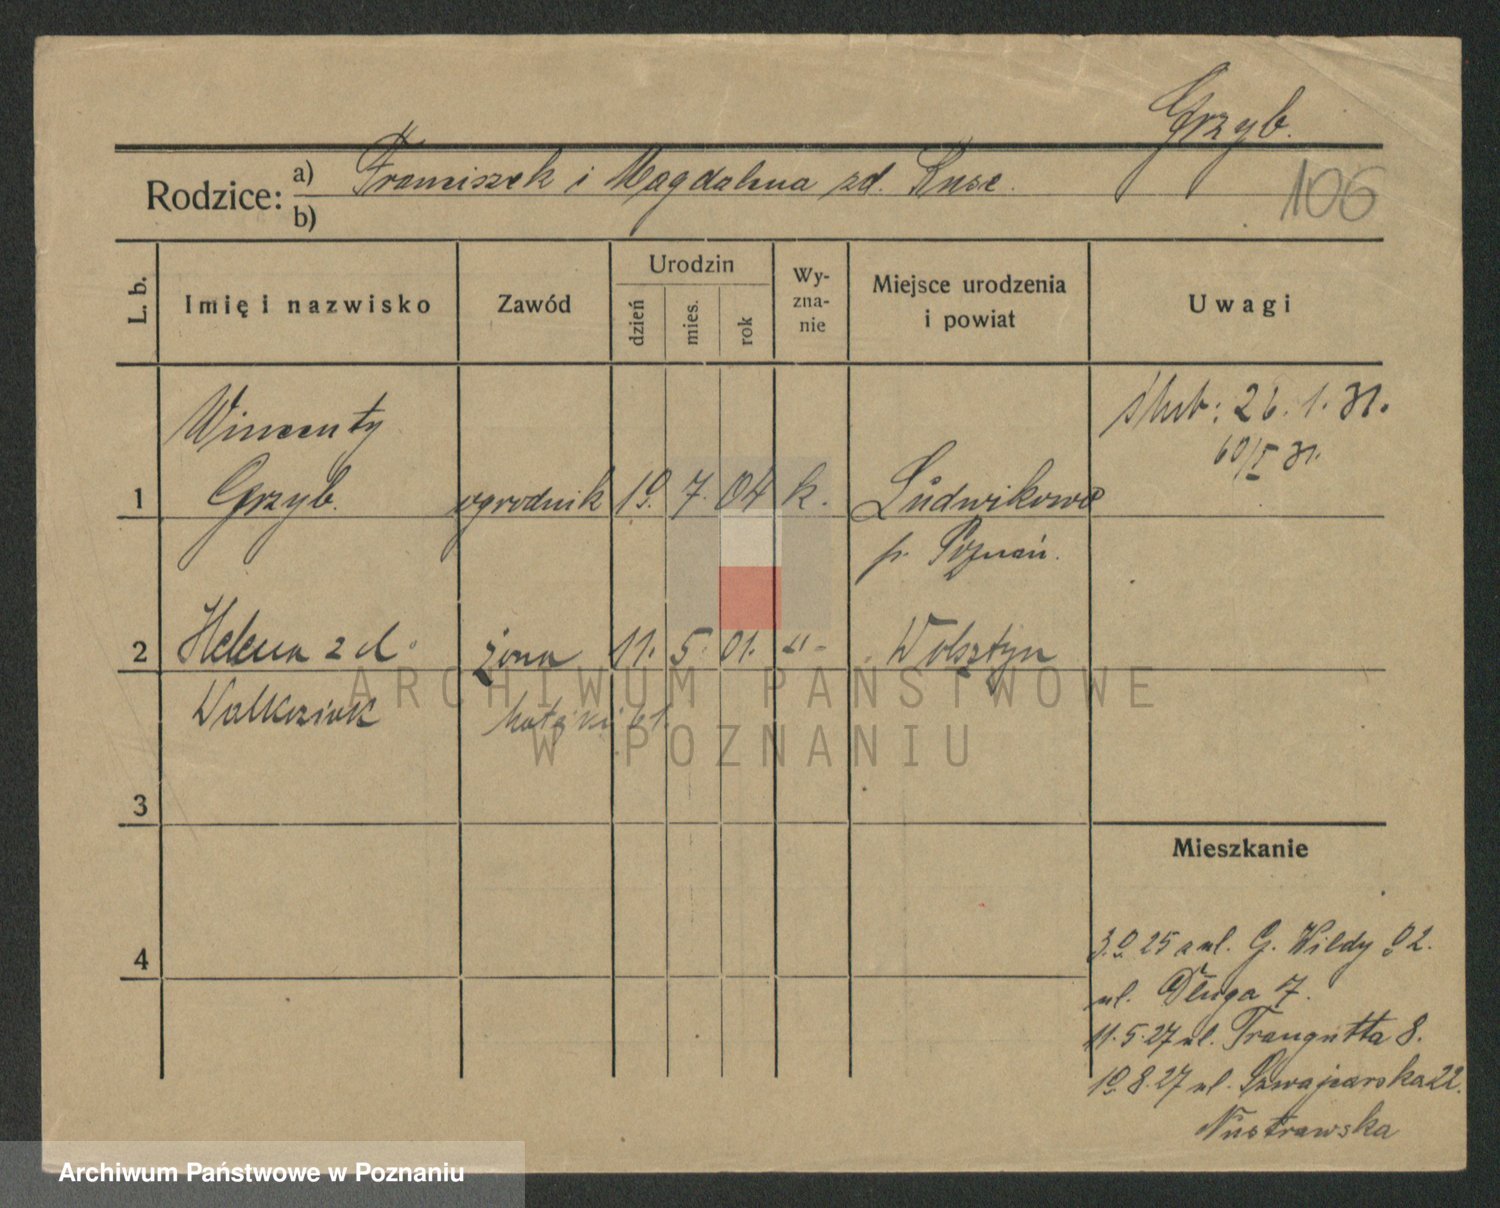 Grzyb.
Rodzice: a) Franciszek i Magdalena zd. Kuse.
b)
106
L. b.
Imię i nazwisko
Zawód
Urodzin
dzień
mies.
rok
Wy-
zna-
nie
Miejsce urodzenia
i powiat
Uwagi
Wincenty
ślub: 26. 1. 31.
60/I 31.
1 Grzyb. ogrodnik 19. 7. 04 k. Ludwikowo
p. Poznań.
2 Helena zd. żona 11. 5. 01. -"- Wolsztyn
Walkowiak Matejki 61.
3
Mieszkanie
4
3.9.25 a ul. G. Wildy 92.
ul. Długa 7.
11.5.27 ul. Traugutta 8.
19.8.27 ul. Szwajcarska 22.
ARCHIWUM PAŃSTWOWE
W POZNANIU
Archiwum Państwowe w Poznaniu